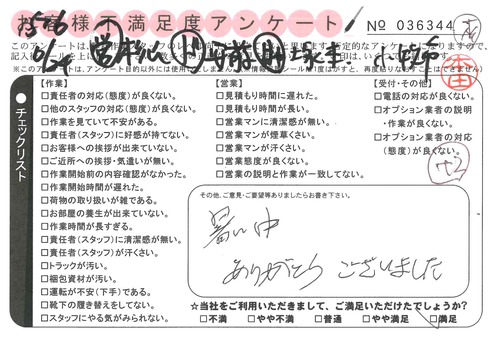 お客様不満足度アンケート
No 036344
【作業】
□責任者の対応(態度)が良くない。
□他のスタッフの対応(態度)が良くない。
□作業を見ていて不安がある。
□責任者(スタッフ)に好感が持てない。
□お客様への挨拶が出来ていない。
□ご近所への挨拶・気遣いが無い。
□作業開始前の内容確認がなかった。
□作業開始時間が遅れた。
□荷物の取り扱いが雑である。
□お部屋の養生が出来ていない。
□作業時間が長すぎる。
□責任者(スタッフ)に清潔感が無い。
□責任者(スタッフ)が汗くさい。
□トラックが汚い。
□梱包資材が汚い。
□運転が不安(下手)である。
□靴下の履き替えをしてない。
□スタッフにやる気がみられない。
【営業】
□見積もり時間に遅れた。
□見積もり時間が長い。
□営業マンに清潔感が無い。
□営業マンが煙草くさい。
□営業マンが汗くさい。
□営業態度が良くない。
□営業の説明と作業が一致してない。
【受付・その他】
□電話の対応が良くない。
□オプション業者の説明
・作業が良くない。
□オプション業者の対応
(態度)が良くない。
チェックリスト
その他、ご意見・ご要望等ありましたらお書き下さい。
暑い中
ありがとう ございました
☆当社をご利用いただきまして、ご満足いただけたでしょうか?
□不満 □やや不満 □普通 □やや満足 □満足